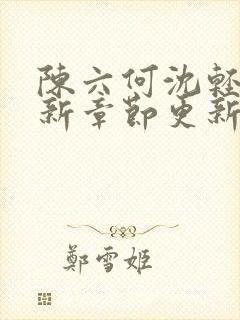 陳六何沈輕
新章節更新
鄭雪姬